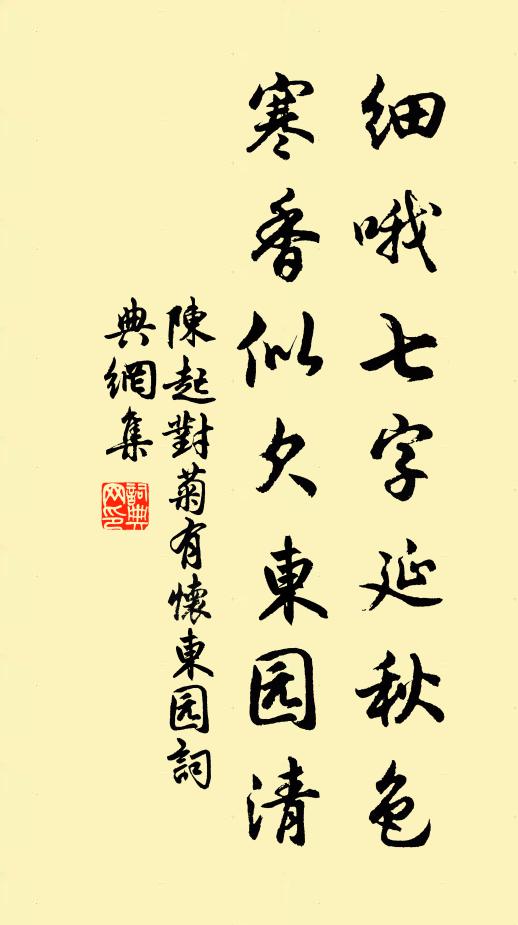 细哦七字延秋色
寒香似欠東园清
陳起對菊有懷東园詞
典網集
詞典
网印